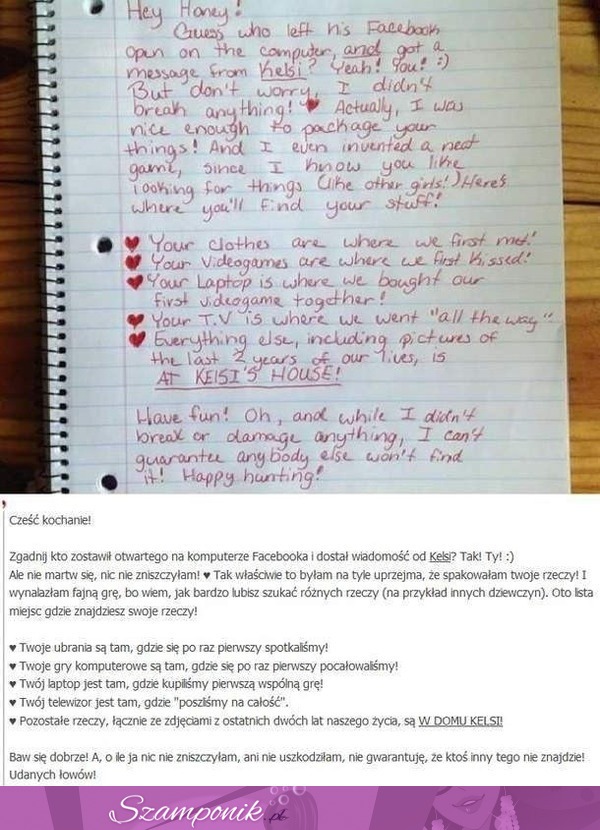 Hey Honey!
Guess who left his Facebook
open on the computer, and got a
message from Kelsi? Yeah! You! :)
But don't worry, I didn't
break anything! ♥ Actually, I was
nice enough to package your
things! And I even invented a neat
game, since I know you like
looking for things (like other girls!) Here's
where you'll find your stuff!
♥ Your clothes are where we first met!
♥ Your Videogames are where we first kissed!
♥ Your Laptop is where we bought our
first videogame together!
♥ Your T.V is where we went "all the way".
♥ Everything else, including pictures of
the last 2 years of our lives, is
AT KELSI'S HOUSE!
Have fun! Oh, and while I didn't
break or damage anything, I can't
guarantee anybody else won't find
it! Happy hunting!
Cześć kochanie!
Zgadnij kto zostawił otwartego na komputerze Facebooka i dostał wiadomość od Kelsi? Tak! Ty! :)
Ale nie martw się, nic nie zniszczyłam! ♥ Tak właściwie to byłam na tyle uprzejma, że spakowałam twoje rzeczy! I
wynalazłam fajną grę, bo wiem, jak bardzo lubisz szukać różnych rzeczy (na przykład innych dziewczyn). Oto lista
miejsc gdzie znajdziesz swoje rzeczy!
♥ Twoje ubrania są tam, gdzie się po raz pierwszy spotkaliśmy!
♥ Twoje gry komputerowe są tam, gdzie się po raz pierwszy pocałowaliśmy!
♥ Twój laptop jest tam, gdzie kupiliśmy pierwszą wspólną grę!
♥ Twój telewizor jest tam, gdzie "poszliśmy na całość".
♥ Pozostałe rzeczy, łącznie ze zdjęciami z ostatnich dwóch lat naszego życia, są W DOMU KELSI!
Baw się dobrze! A, o ile ja nic nie zniszczyłam, ani nie uszkodziłam, nie gwarantuję, że ktoś inny tego nie znajdzie!
Udanych łowów!
Szamponik.pl